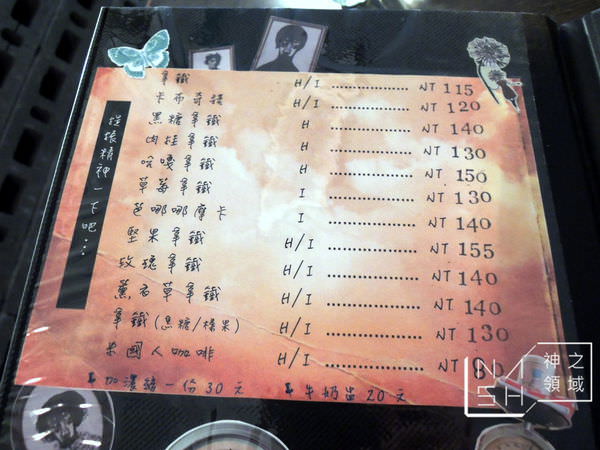 拿鐵 H/I .................... NT 115
卡布奇諾 H/I .................... NT 120
黑糖拿鐵 H .................... NT 140
肉桂拿鐵 H .................... NT 130
拿鐵 H .................... NT 150
草莓拿鐵 I .................... NT 130
芭哪哪摩卡 I .................... NT 140
堅果拿鐵 H/I .................... NT 155
玫瑰拿鐵 H/I .................... NT 140
薰衣草拿鐵 H/I .................... NT 140
拿鐵(焦糖/榛果) H/I .................... NT 130
米國人咖啡 H/I .................... NT
*加濃縮一份30元 *牛奶盅20元
提振精神一下吧...
神之領域